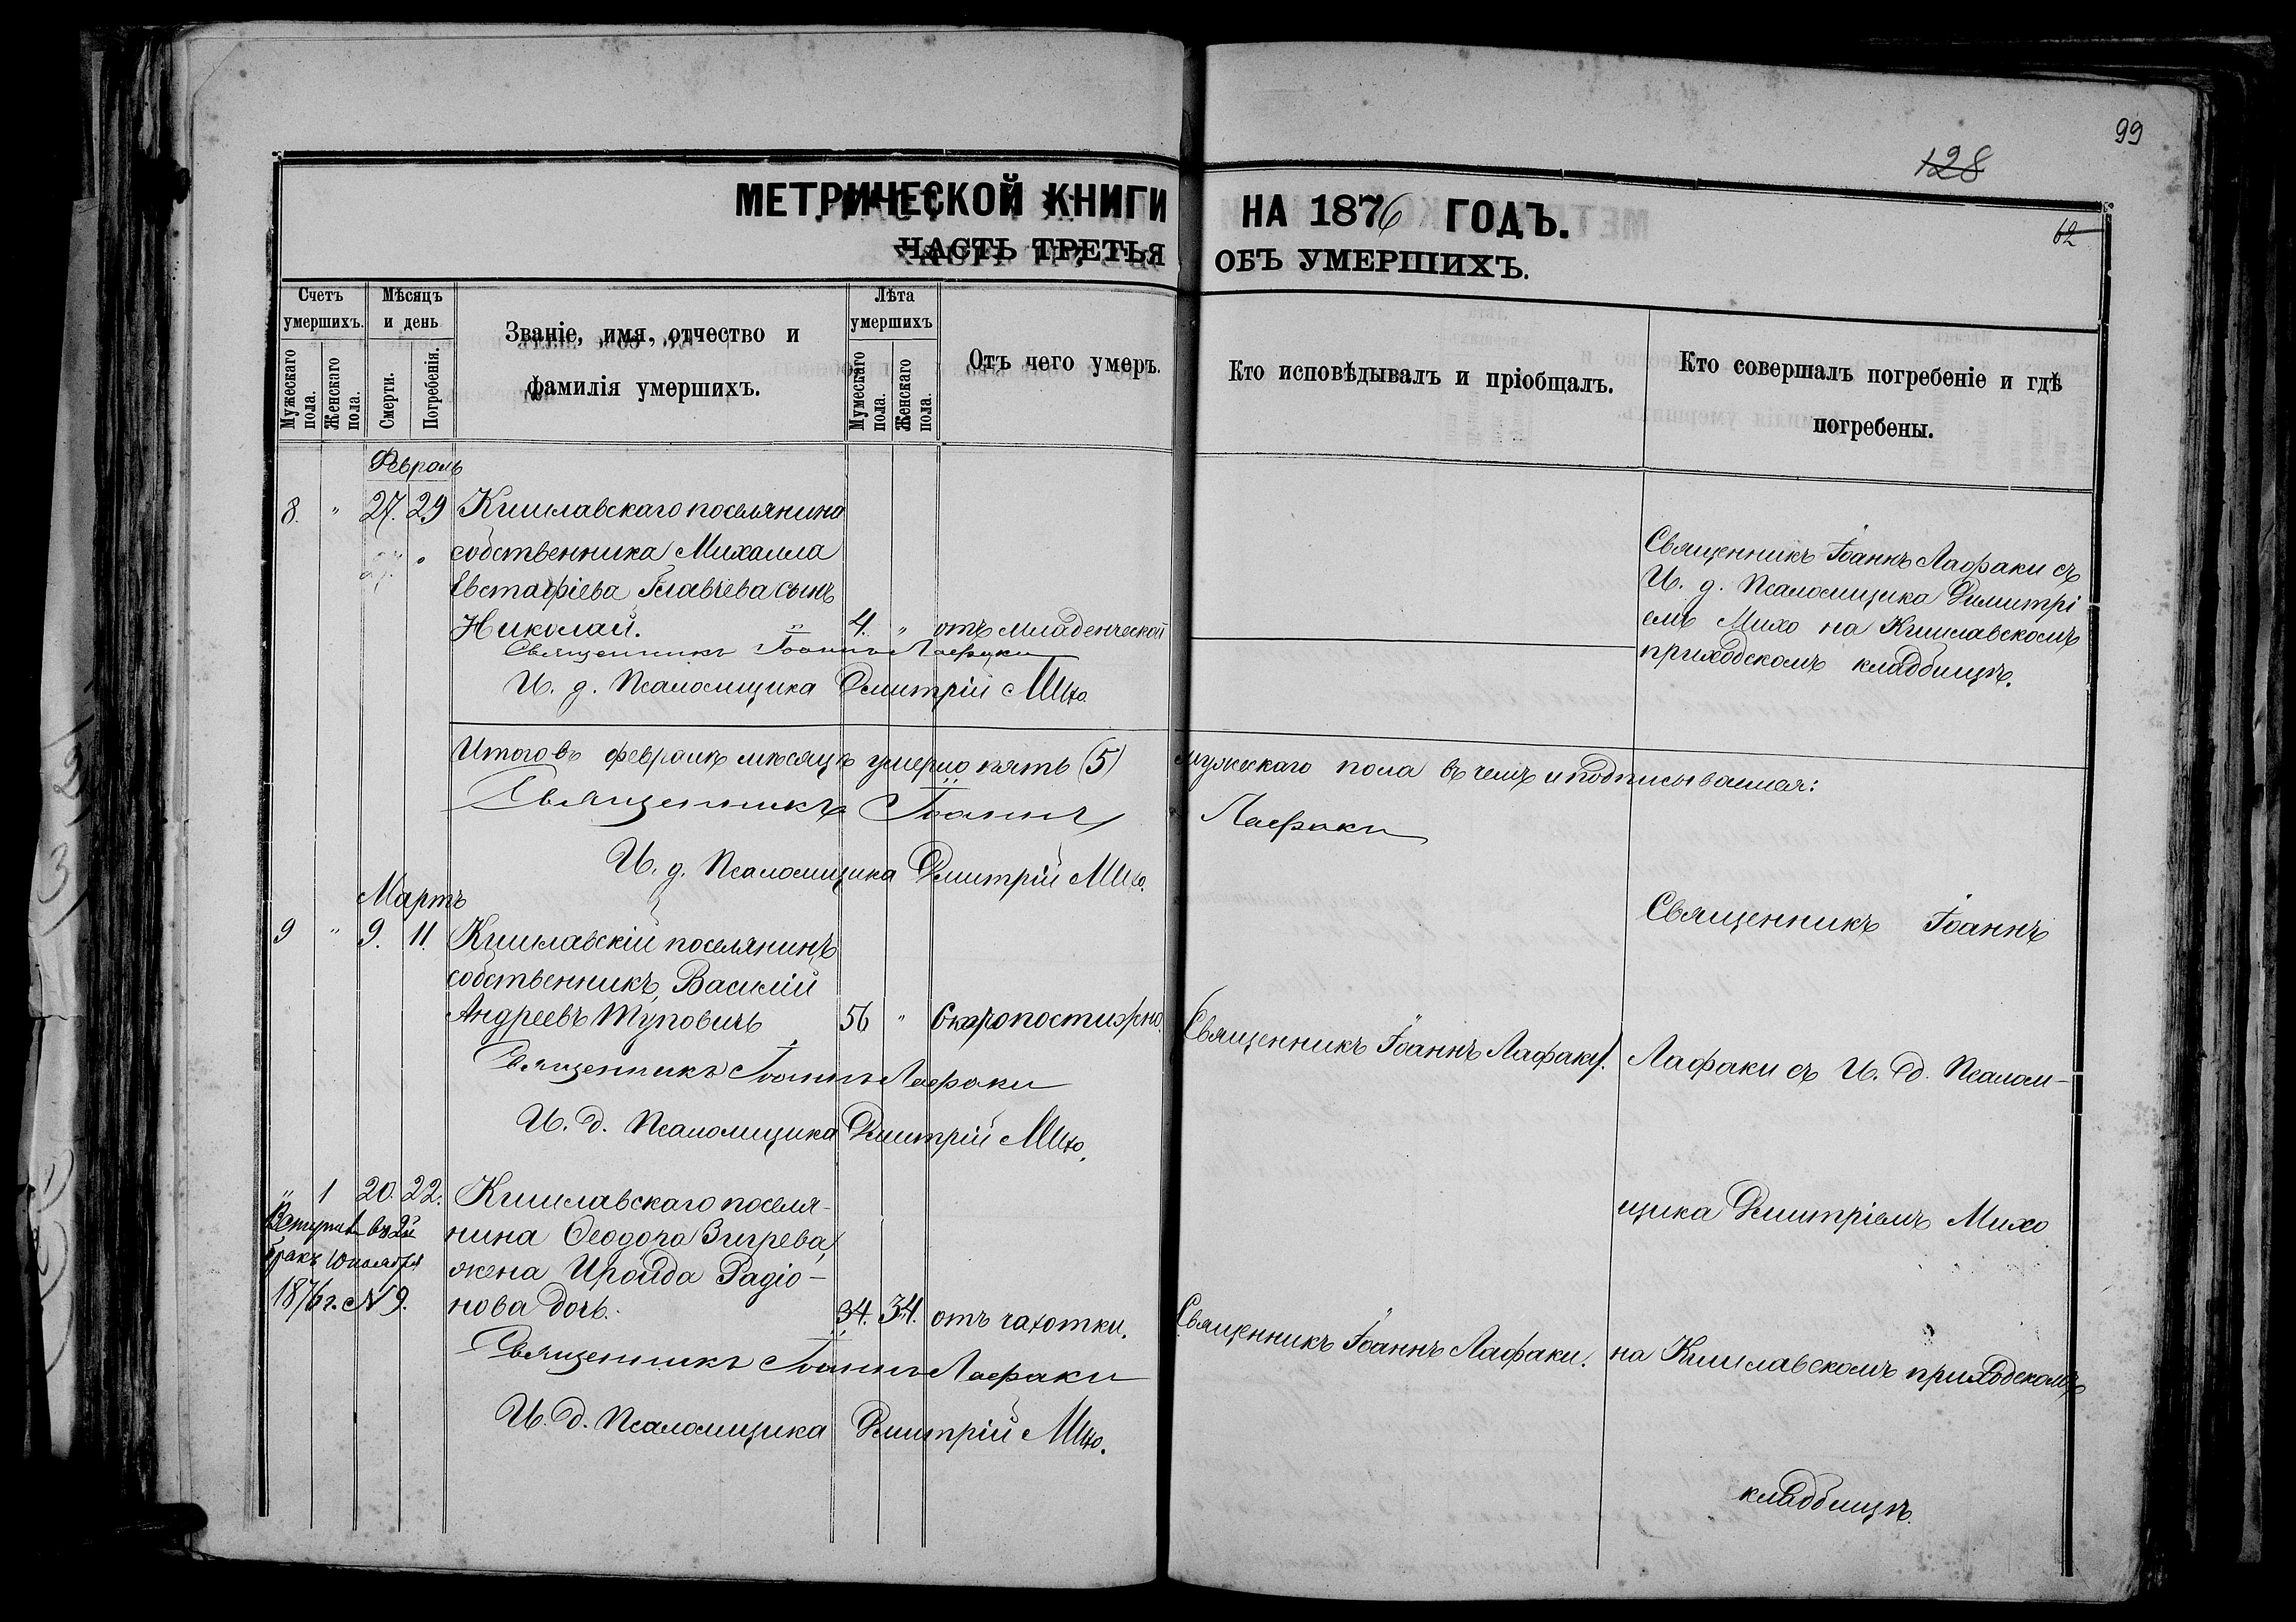 99
128
62
МЕТРИЧЕСКОЙ КНИГИ НА 1876 ГОДЪ.
ЧАСТЬ ТРЕТЬЯ ОБЪ УМЕРШИХЪ.
Счетъ умершихъ.
Мужескаго пола.
Женскаго пола.
Мѣсяцъ и день
Смерти.
Погребенія.
Званіе, имя, отчество и
фамилія умершихъ.
Лѣта умершихъ
Мужескаго пола.
Женскаго пола.
Отъ чего умеръ.
Кто исповѣдывалъ и пріобщалъ.
Кто совершалъ погребеніе и гдѣ
погребены.
Февраль
8. " 27. 29 Кишлавскаго поселянина
собственника Михаила
Евстафіева Главчева сынъ
Николай. 4. " отъ младенческой
Священникъ Іоаннъ Лафаки
И. д. Псаломщика Димитрій Михо.
Священникъ Іоаннъ Лафаки съ
И. д. Псаломщика Димитрі
емъ Михо на Кишлавскомъ
приходскомъ кладбищѣ.
Итого въ февралѣ мѣсяцѣ умерло пять (5) мужескаго пола въ чемъ и подписываемся:
Священникъ Іоаннъ Лафаки
И. д. Псаломщика Димитрій Михо.
Мартъ
9 " 9. 11. Кишлавскій поселянинъ
собственникъ, Василій
Андреевъ Туповичъ 56 " Скоропостижно. Священникъ Іоаннъ Лафаки.
Священникъ Іоаннъ Лафаки
И. д. Псаломщика Димитрій Михо.
" 1 20. 22. Кишлавскаго поселя-
нина Ѳеодора Зигрева,
жена Ироида Радіо-
нова дочь. 34. 34. отъ чахотки. Священникъ Іоаннъ Лафаки.
Вступил въ 2й
бракъ 10 ноября
1876 г. № 9.
Священникъ Іоаннъ Лафаки
И. д. Псаломщика Димитрій Михо.
Священникъ Іоаннъ
Лафаки съ И. д. Псалом-
щика Димитріемъ Михо
на Кишлавскомъ приходскомъ
кладбищѣ.